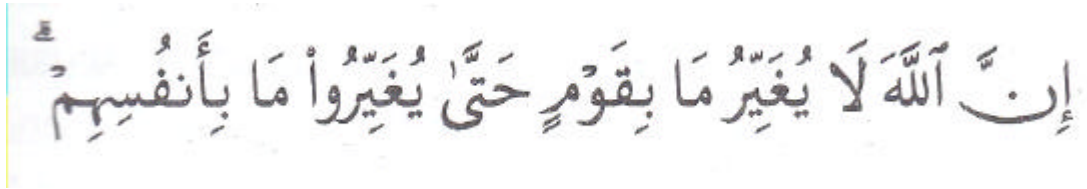 إِنَّ ٱللَّهَ لَا يُغَيِّرُ مَا بِقَوْمٍ حَتَّىٰ يُغَيِّرُوا۟ مَا بِأَنفُسِهِمْ ۗ